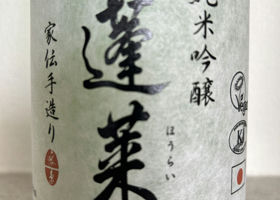 純米吟醸
蓬莱
ほうらい
家伝手造り
Vegan